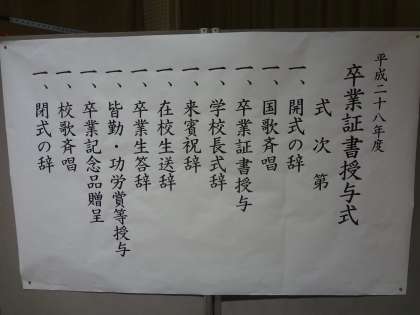 平成二十八年度
卒業証書授与式
式次第
一、開式の辞
一、国歌斉唱
一、卒業証書授与
一、学校長式辞
一、来賓祝辞
一、在校生送辞
一、卒業生答辞
一、皆勤・功労賞等授与
一、卒業記念品贈呈
一、校歌斉唱
一、閉式の辞